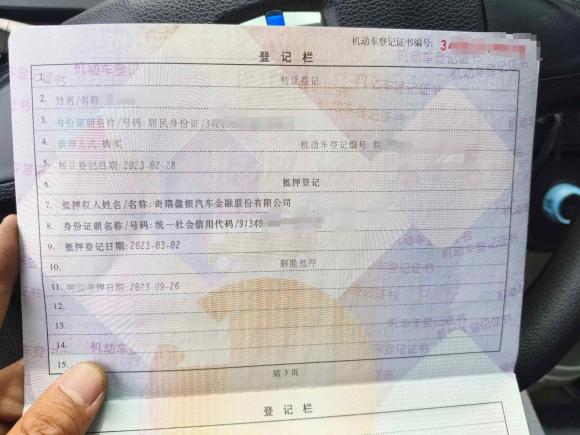 机动车登记证书编号: 34
登记栏
1. 转让登记
2. 姓名/名称:
3. 身份证明名称/号码: 居民身份证/34
4. 获得方式: 购买 机动车登记编号: 皖
5. 转让登记日期: 2023-02-28
6. 抵押登记
7. 抵押权人姓名/名称: 奇瑞徽银汽车金融股份有限公司
8. 身份证明名称/号码: 统一社会信用代码/91340
9. 抵押登记日期: 2023-03-02
10. 解除抵押
11. 解除抵押日期: 2023-09-26
12.
13.
14.
15.
第3页
登记栏